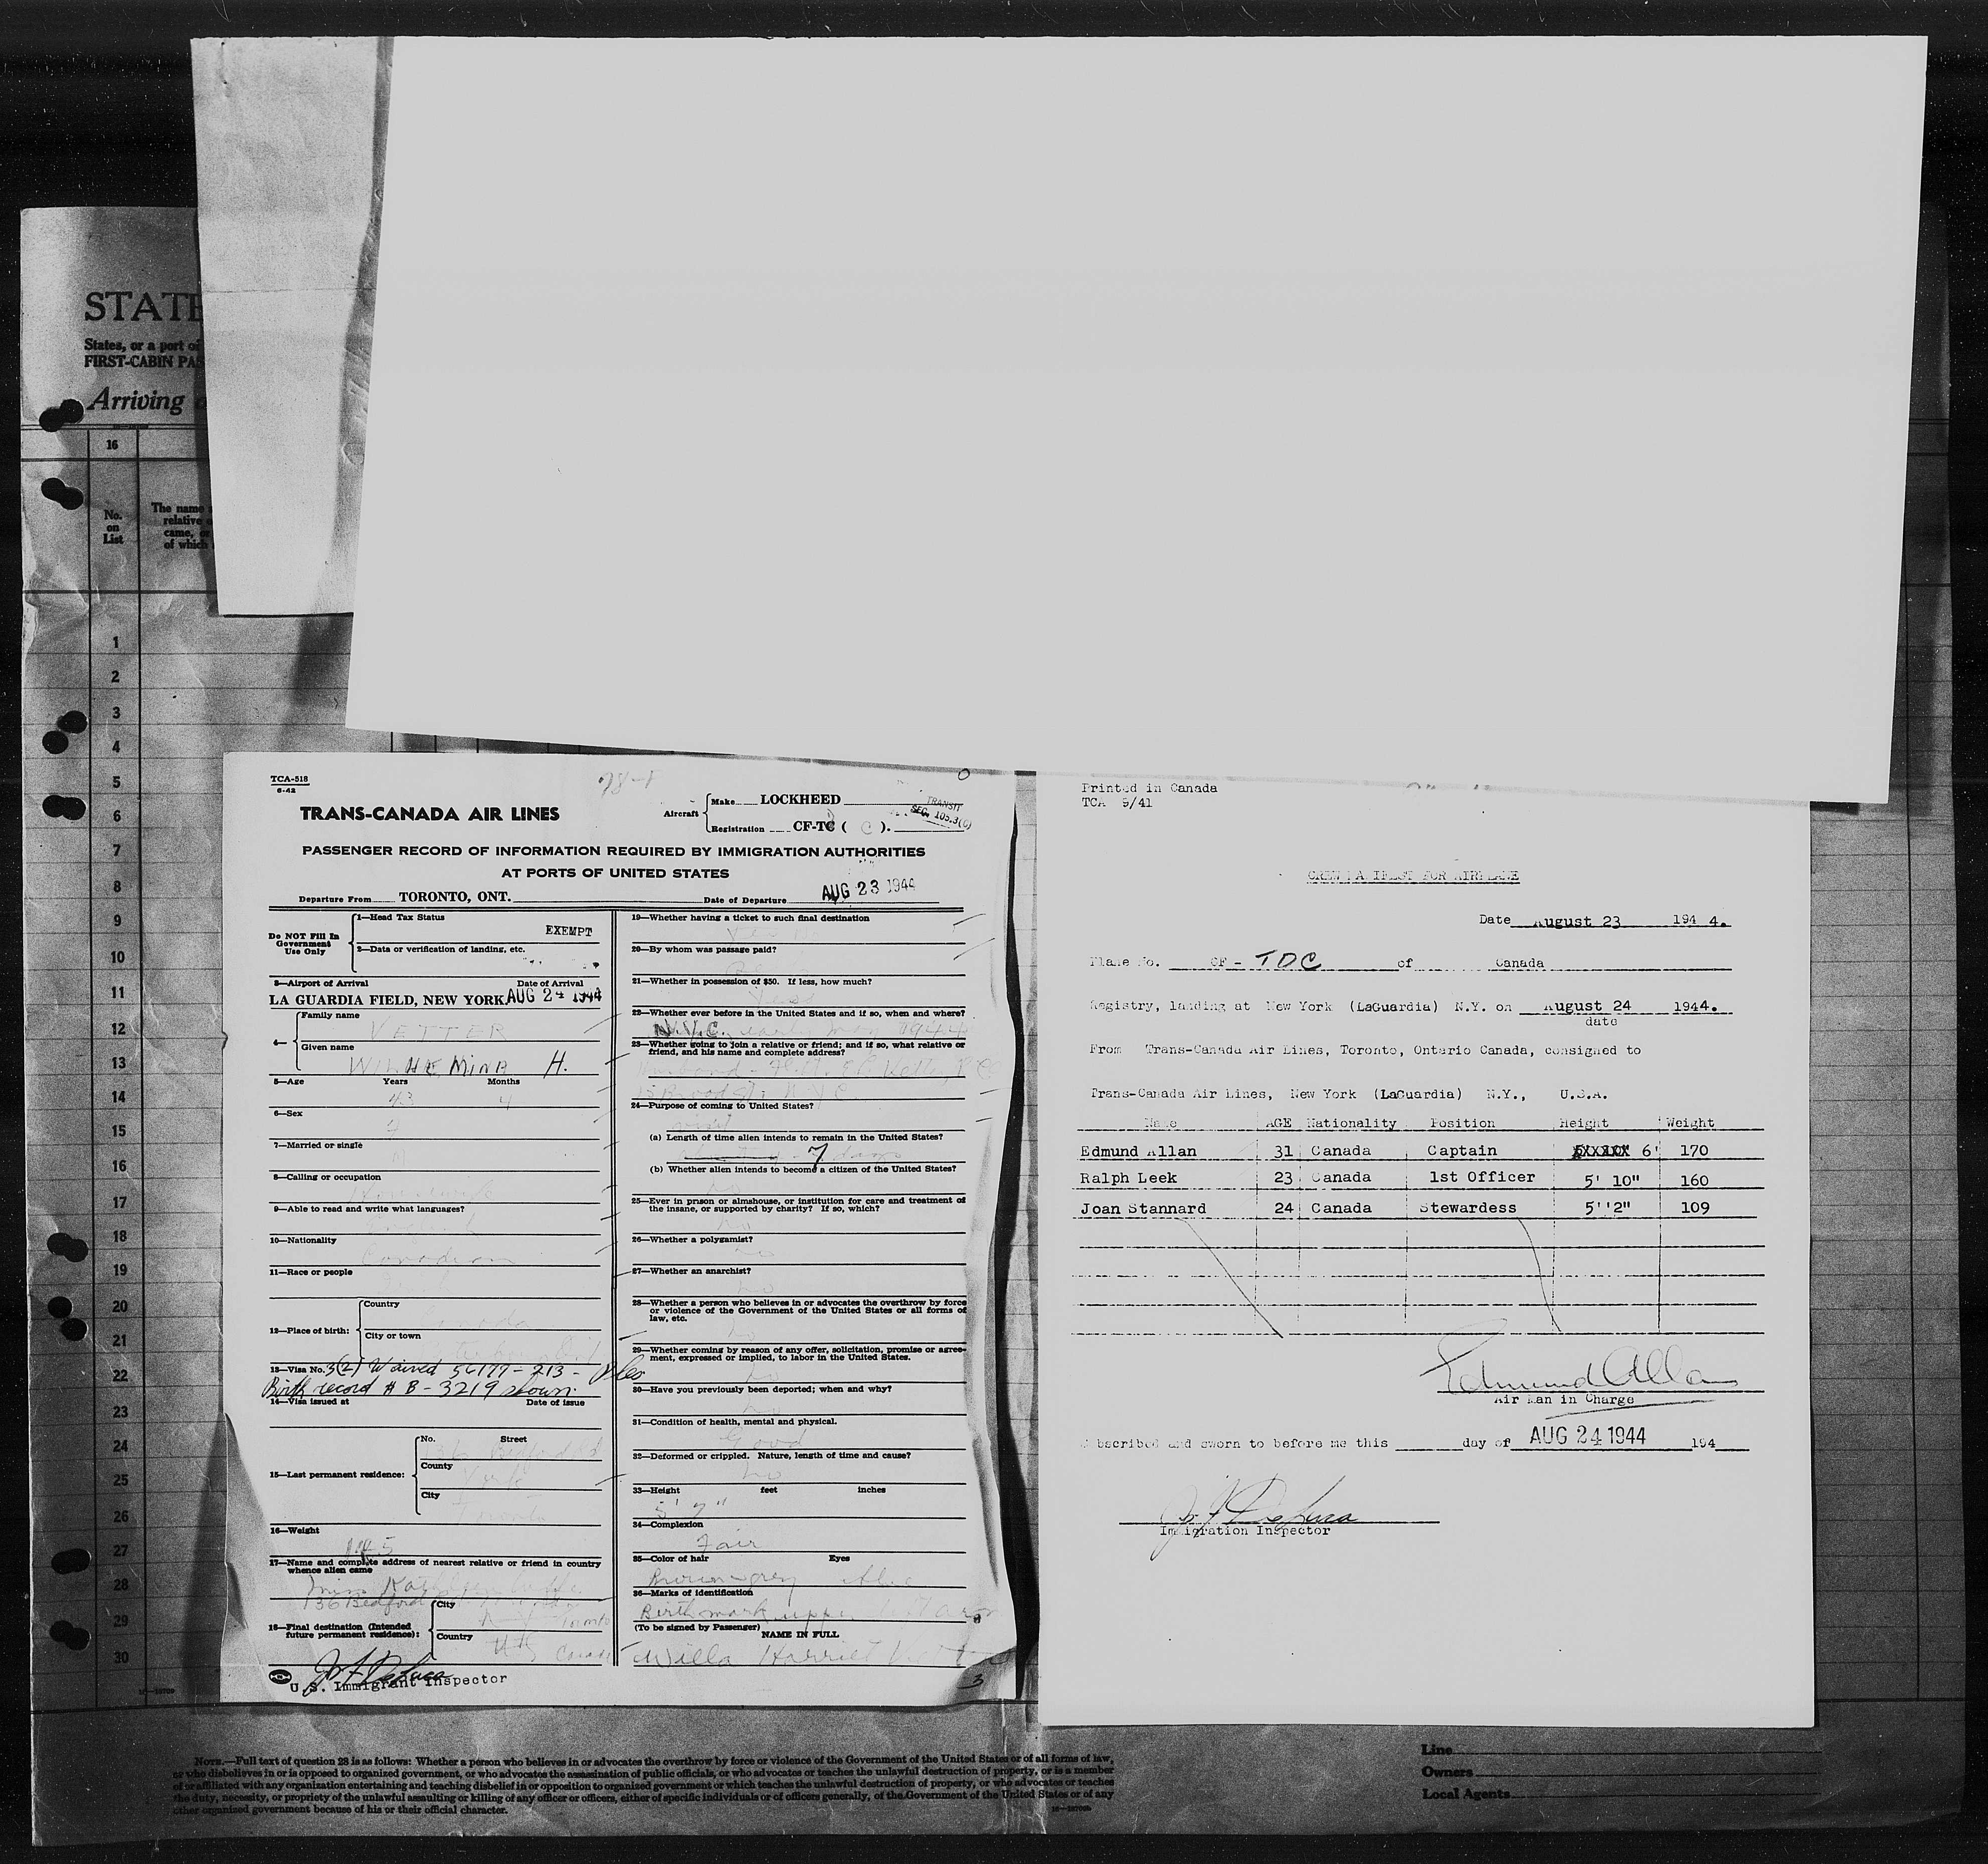 STATE
States, or a port of
FIRST-CABIN PAS
Arriving
16
No.
on
List
The name
relative
came, or
of which
1
2
3
4
5
6
7
8
9
10
11
12
13
14
15
16
17
18
19
20
21
22
23
24
25
26
27
28
29
30
TCA-518
6-42
TRANS-CANADA AIR LINES
Aircraft
Make LOCKHEED
Registration CF-TC ( ).
TRANSIT
SEC. 105.3(c)
PASSENGER RECORD OF INFORMATION REQUIRED BY IMMIGRATION AUTHORITIES
AT PORTS OF UNITED STATES
Departure From TORONTO, ONT. Date of Departure AUG 23 1944
Do NOT Fill In
Government
Use Only
1—Head Tax Status
EXEMPT
2—Data or verification of landing, etc.
3—Airport of Arrival Date of Arrival
LA GUARDIA FIELD, NEW YORK. AUG 24 1944
4—
Family name
VETTER
Given name
WILHEMINA H.
5—Age Years Months
43 4
6—Sex
7—Married or single
8—Calling or occupation
9—Able to read and write what languages?
10—Nationality
Canadian
11—Race or people
12—Place of birth:
Country
Canada
City or town
13—Visa No. 3(2) Waived 56177-213-
Birth record # B-3219 shown.
14—Visa issued at Date of issue
15—Last permanent residence:
No. Street
136 Bedford Rd
County
York
City
Toronto
16—Weight
145
17—Name and complete address of nearest relative or friend in country
whence alien came
Miss
136 Bedford
18—Final destination (Intended
future permanent residence):
City
Toronto
Country
Canada
U.S. Immigrant Inspector
19—Whether having a ticket to such final destination
Yes
20—By whom was passage paid?
21—Whether in possession of $50. If less, how much?
Yes
22—Whether ever before in the United States and if so, when and where?
N.Y.C. early May 1944
23—Whether going to join a relative or friend; and if so, what relative or
friend, and his name and complete address?
Husband
Broad St. NYC
24—Purpose of coming to United States?
visit
(a) Length of time alien intends to remain in the United States?
7 days
(b) Whether alien intends to become a citizen of the United States?
no
25—Ever in prison or almshouse, or institution for care and treatment of
the insane, or supported by charity? If so, which?
no
26—Whether a polygamist?
no
27—Whether an anarchist?
no
28—Whether a person who believes in or advocates the overthrow by force
or violence of the Government of the United States or all forms of
law, etc.
no
29—Whether coming by reason of any offer, solicitation, promise or agree-
ment, expressed or implied, to labor in the United States.
no
30—Have you previously been deported; when and why?
no
31—Condition of health, mental and physical.
Good
32—Deformed or crippled. Nature, length of time and cause?
no
33—Height feet inches
5' 7"
34—Complexion
Fair
35—Color of hair Eyes
Brown-grey
36—Marks of identification
Birthmark upper
(To be signed by Passenger)
NAME IN FULL
Willa Harriet Vetter
3
Printed in Canada
TCA 9/41
CREW MANIFEST FOR AIRPLANE
Date August 23 194 4.
Plane No. CF - TDC of Canada
Registry, landing at New York (LaGuardia) N.Y. on August 24 1944.
date
From Trans-Canada Air Lines, Toronto, Ontario Canada, consigned to
Trans-Canada Air Lines, New York (LaGuardia) N.Y., U.S.A.
Name AGE Nationality Position Height Weight
Edmund Allan 31 Canada Captain 6' 170
Ralph Leek 23 Canada 1st Officer 5' 10" 160
Joan Stannard 24 Canada Stewardess 5''2" 109
Edmund Allan
Air Man in Charge
Subscribed and sworn to before me this day of AUG 24 1944 194
Immigration Inspector
NOTE.—Full text of question 28 is as follows: Whether a person who believes in or advocates the overthrow by force or violence of the Government of the United States or of all forms of law,
or who disbelieves in or is opposed to organized government, or who advocates the assassination of public officials, or who advocates or teaches the unlawful destruction of property, or is a member
of or affiliated with any organization entertaining and teaching disbelief in or opposition to organized government or which teaches the unlawful destruction of property, or who advocates or teaches
the duty, necessity, or propriety of the unlawful assaulting or killing of any officer or officers, either of specific individuals or of officers generally, of the Government of the United States or of any
other organized government because of his or their official character.
Line
Owners
Local Agents